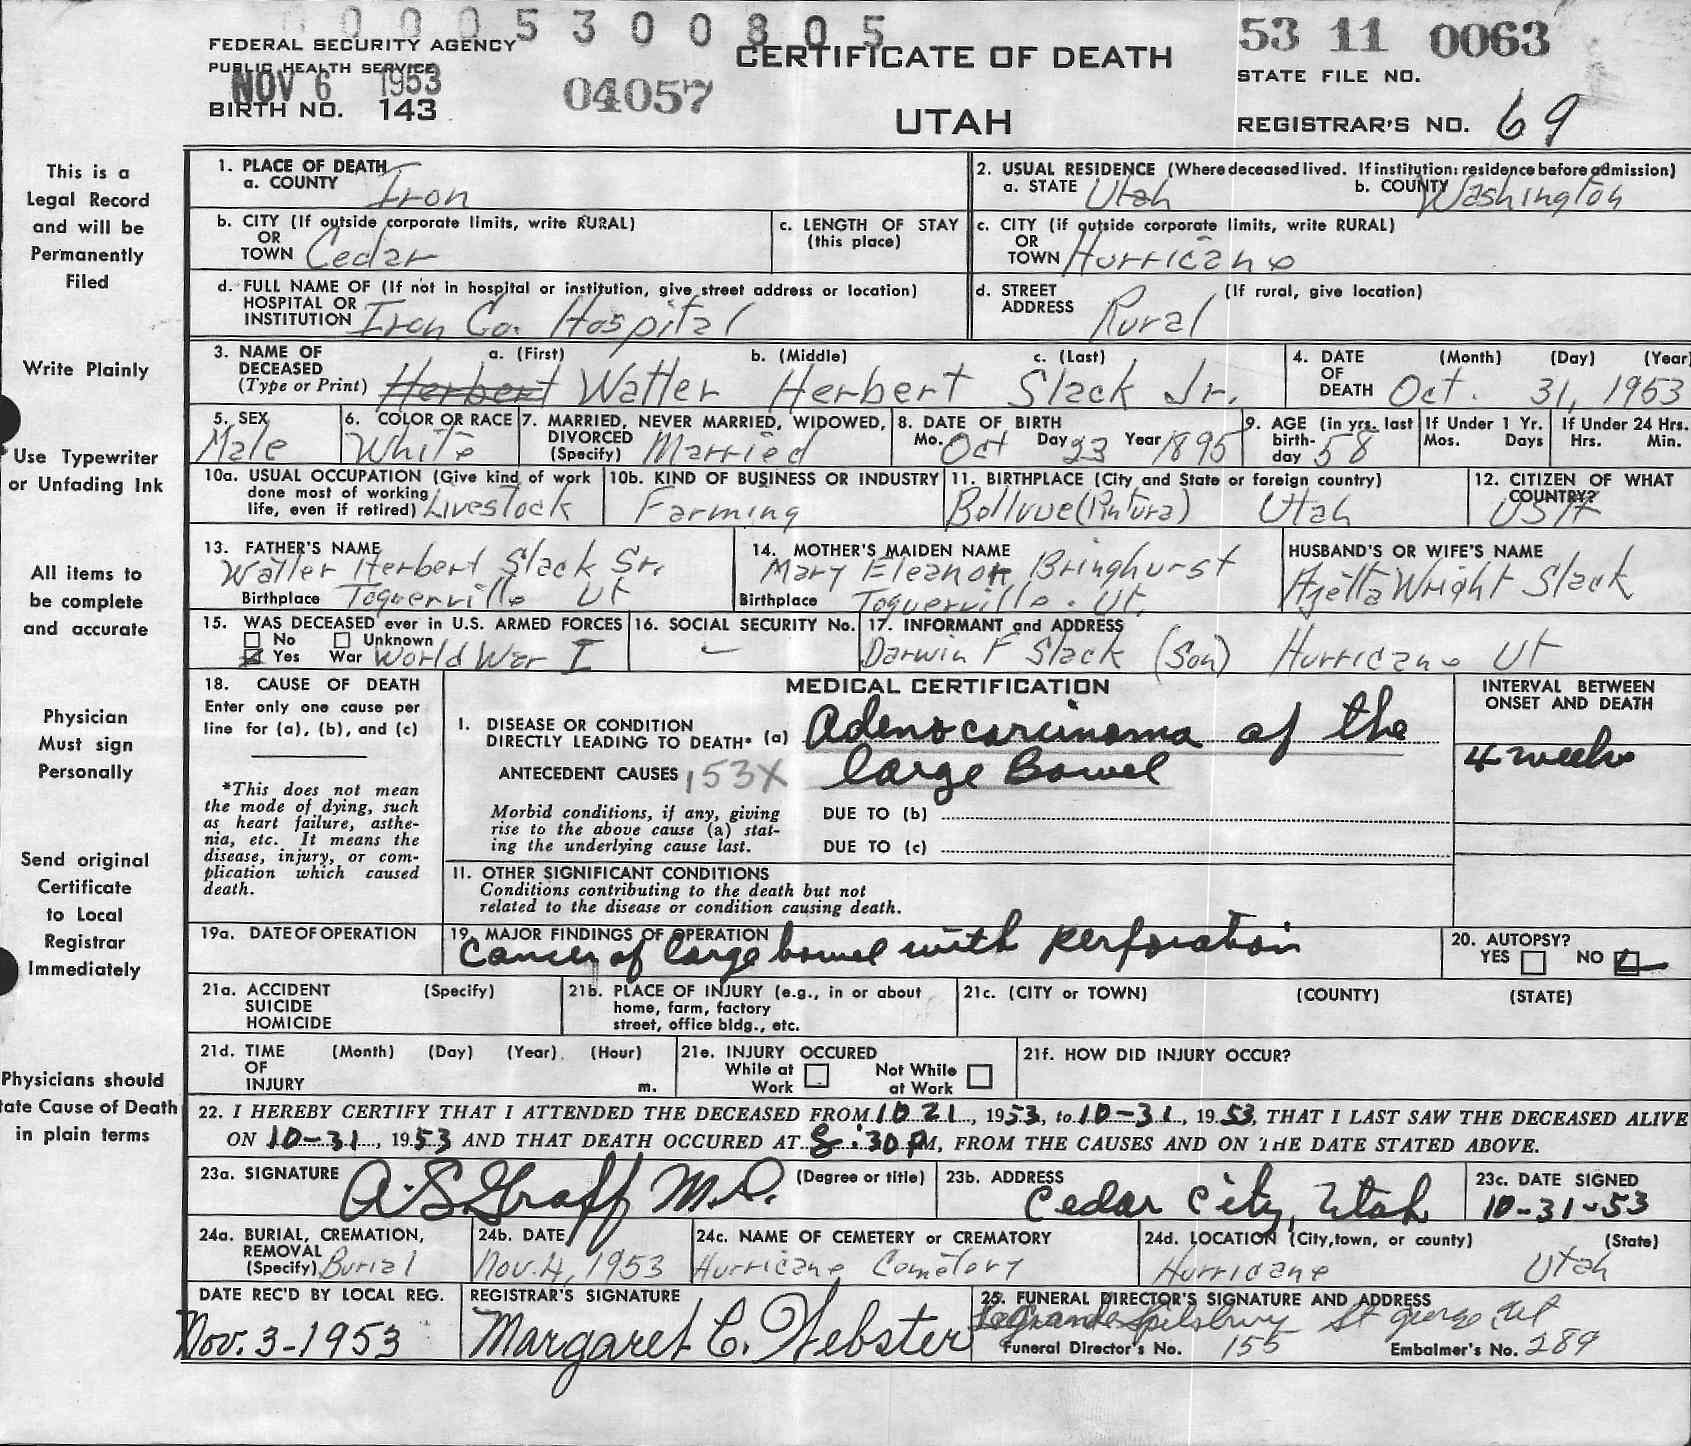 0005300805
53 11 0063
FEDERAL SECURITY AGENCY
PUBLIC HEALTH SERVICE
NOV 6 1953
BIRTH NO. 143
04057
CERTIFICATE OF DEATH
UTAH
STATE FILE NO.
REGISTRAR'S NO. 69
This is a
Legal Record
and will be
Permanently
Filed
Write Plainly
Use Typewriter
or Unfading Ink
All items to
be complete
and accurate
Physician
Must sign
Personally
Send original
Certificate
to Local
Registrar
Immediately
Physicians should
tate Cause of Death
in plain terms
1. PLACE OF DEATH
a. COUNTY Iron
2. USUAL RESIDENCE (Where deceased lived. If institution: residence before admission)
a. STATE Utah b. COUNTY Washington
b. CITY (If outside corporate limits, write RURAL)
OR
TOWN Cedar
c. LENGTH OF STAY
(this place)
c. CITY (if outside corporate limits, write RURAL)
OR
TOWN Hurricane
d. FULL NAME OF (If not in hospital or institution, give street address or location)
HOSPITAL OR
INSTITUTION Iron Co. Hospital
d. STREET (If rural, give location)
ADDRESS Rural
3. NAME OF DECEASED (Type or Print)
a. (First) b. (Middle) c. (Last)
Herbert Walter Herbert Slack Jr.
4. DATE OF DEATH (Month) (Day) (Year)
Oct. 31, 1953
5. SEX
Male
6. COLOR OR RACE
White
7. MARRIED, NEVER MARRIED, WIDOWED,
DIVORCED
(Specify) Married
8. DATE OF BIRTH
Mo. Oct Day 23 Year 1895
9. AGE (in yrs. last
birth-
day 58
If Under 1 Yr.
Mos. Days
If Under 24 Hrs.
Hrs. Min.
10a. USUAL OCCUPATION (Give kind of work
done most of working
life, even if retired) Livestock
10b. KIND OF BUSINESS OR INDUSTRY
Farming
11. BIRTHPLACE (City and State or foreign country)
Bellvue (Pintura) Utah
12. CITIZEN OF WHAT
COUNTRY?
USA
13. FATHER'S NAME
Walter Herbert Slack Sr.
Birthplace Toquerville Ut
14. MOTHER'S MAIDEN NAME
Mary Eleanor Bringhurst
Birthplace Toquerville. Ut.
HUSBAND'S OR WIFE'S NAME
Azetta Wright Slack
15. WAS DECEASED ever in U.S. ARMED FORCES
No Unknown
Yes War World War I
16. SOCIAL SECURITY No.
—
17. INFORMANT and ADDRESS
Darwin F Slack (Son) Hurricane Ut
18. CAUSE OF DEATH
Enter only one cause per
line for (a), (b), and (c)
*This does not mean
the mode of dying, such
as heart failure, asthe-
nia, etc. It means the
disease, injury, or com-
plication which caused
death.
MEDICAL CERTIFICATION
INTERVAL BETWEEN
ONSET AND DEATH
I. DISEASE OR CONDITION
DIRECTLY LEADING TO DEATH* (a) Adenocarcinoma of the
ANTECEDENT CAUSES 153X large Bowel
4 weeks
Morbid conditions, if any, giving
rise to the above cause (a) stat-
ing the underlying cause last.
DUE TO (b)
DUE TO (c)
11. OTHER SIGNIFICANT CONDITIONS
Conditions contributing to the death but not
related to the disease or condition causing death.
19a. DATE OF OPERATION
19. MAJOR FINDINGS OF OPERATION
Cancer of large bowel with perforation
20. AUTOPSY?
YES NO
21a. ACCIDENT (Specify)
SUICIDE
HOMICIDE
21b. PLACE OF INJURY (e.g., in or about
home, farm, factory
street, office bldg., etc.
21c. (CITY or TOWN) (COUNTY) (STATE)
21d. TIME (Month) (Day) (Year) (Hour)
OF
INJURY m.
21e. INJURY OCCURED
While at Work
Not While at Work
21f. HOW DID INJURY OCCUR?
22. I HEREBY CERTIFY THAT I ATTENDED THE DECEASED FROM 10 21, 1953, to 10-31, 1953, THAT I LAST SAW THE DECEASED ALIVE
ON 10-31, 1953 AND THAT DEATH OCCURED AT 8:30 PM, FROM THE CAUSES AND ON THE DATE STATED ABOVE.
23a. SIGNATURE (Degree or title)
A. S. Graff M.D.
23b. ADDRESS
Cedar City, Utah
23c. DATE SIGNED
10-31-53
24a. BURIAL, CREMATION,
REMOVAL
(Specify) Burial
24b. DATE
Nov. 4, 1953
24c. NAME OF CEMETERY or CREMATORY
Hurricane Cemetery
24d. LOCATION (City, town, or county) (State)
Hurricane Utah
DATE REC'D BY LOCAL REG.
Nov. 3-1953
REGISTRAR'S SIGNATURE
Margaret C. Webster
25. FUNERAL DIRECTOR'S SIGNATURE AND ADDRESS
LeGrande Spilsbury St George, Ut
Funeral Director's No. 155 Embalmer's No. 289